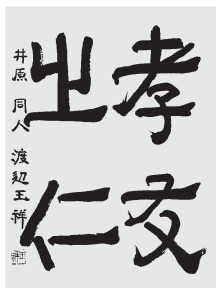 孝友
之仁
井原 同人 渡辺玉祥